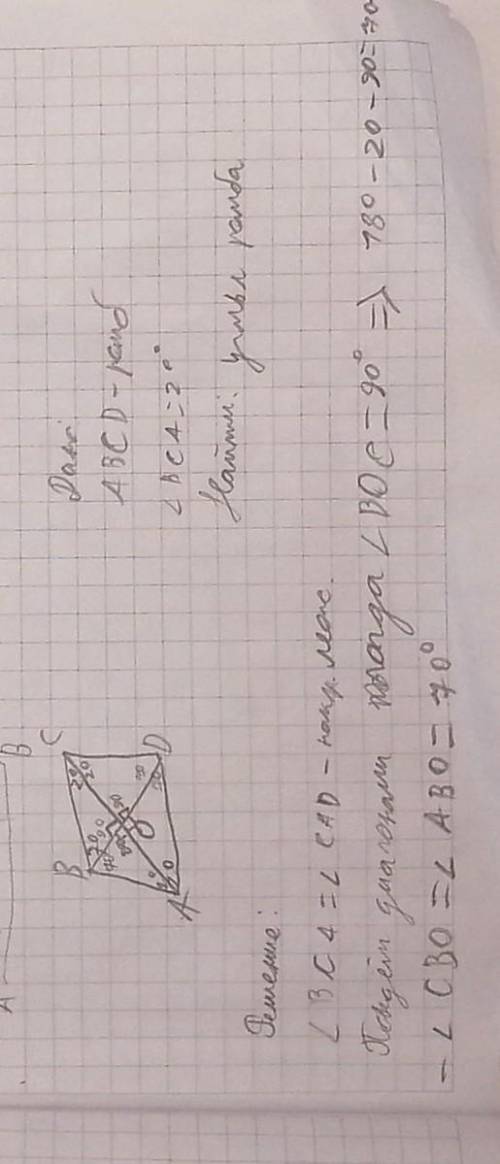 A
B
Дано:
ABCD - ромб
∠BCA = 20°
Найти: углы ромба
B
C
A
D
O
20
20
20
90
90
70
Решение:
∠BCA = ∠CAD - накр. леж.
диагонали тогда ∠BOC = 90° => 180 - 20 - 90 = 70
- ∠CBO = ∠ABO = 70°